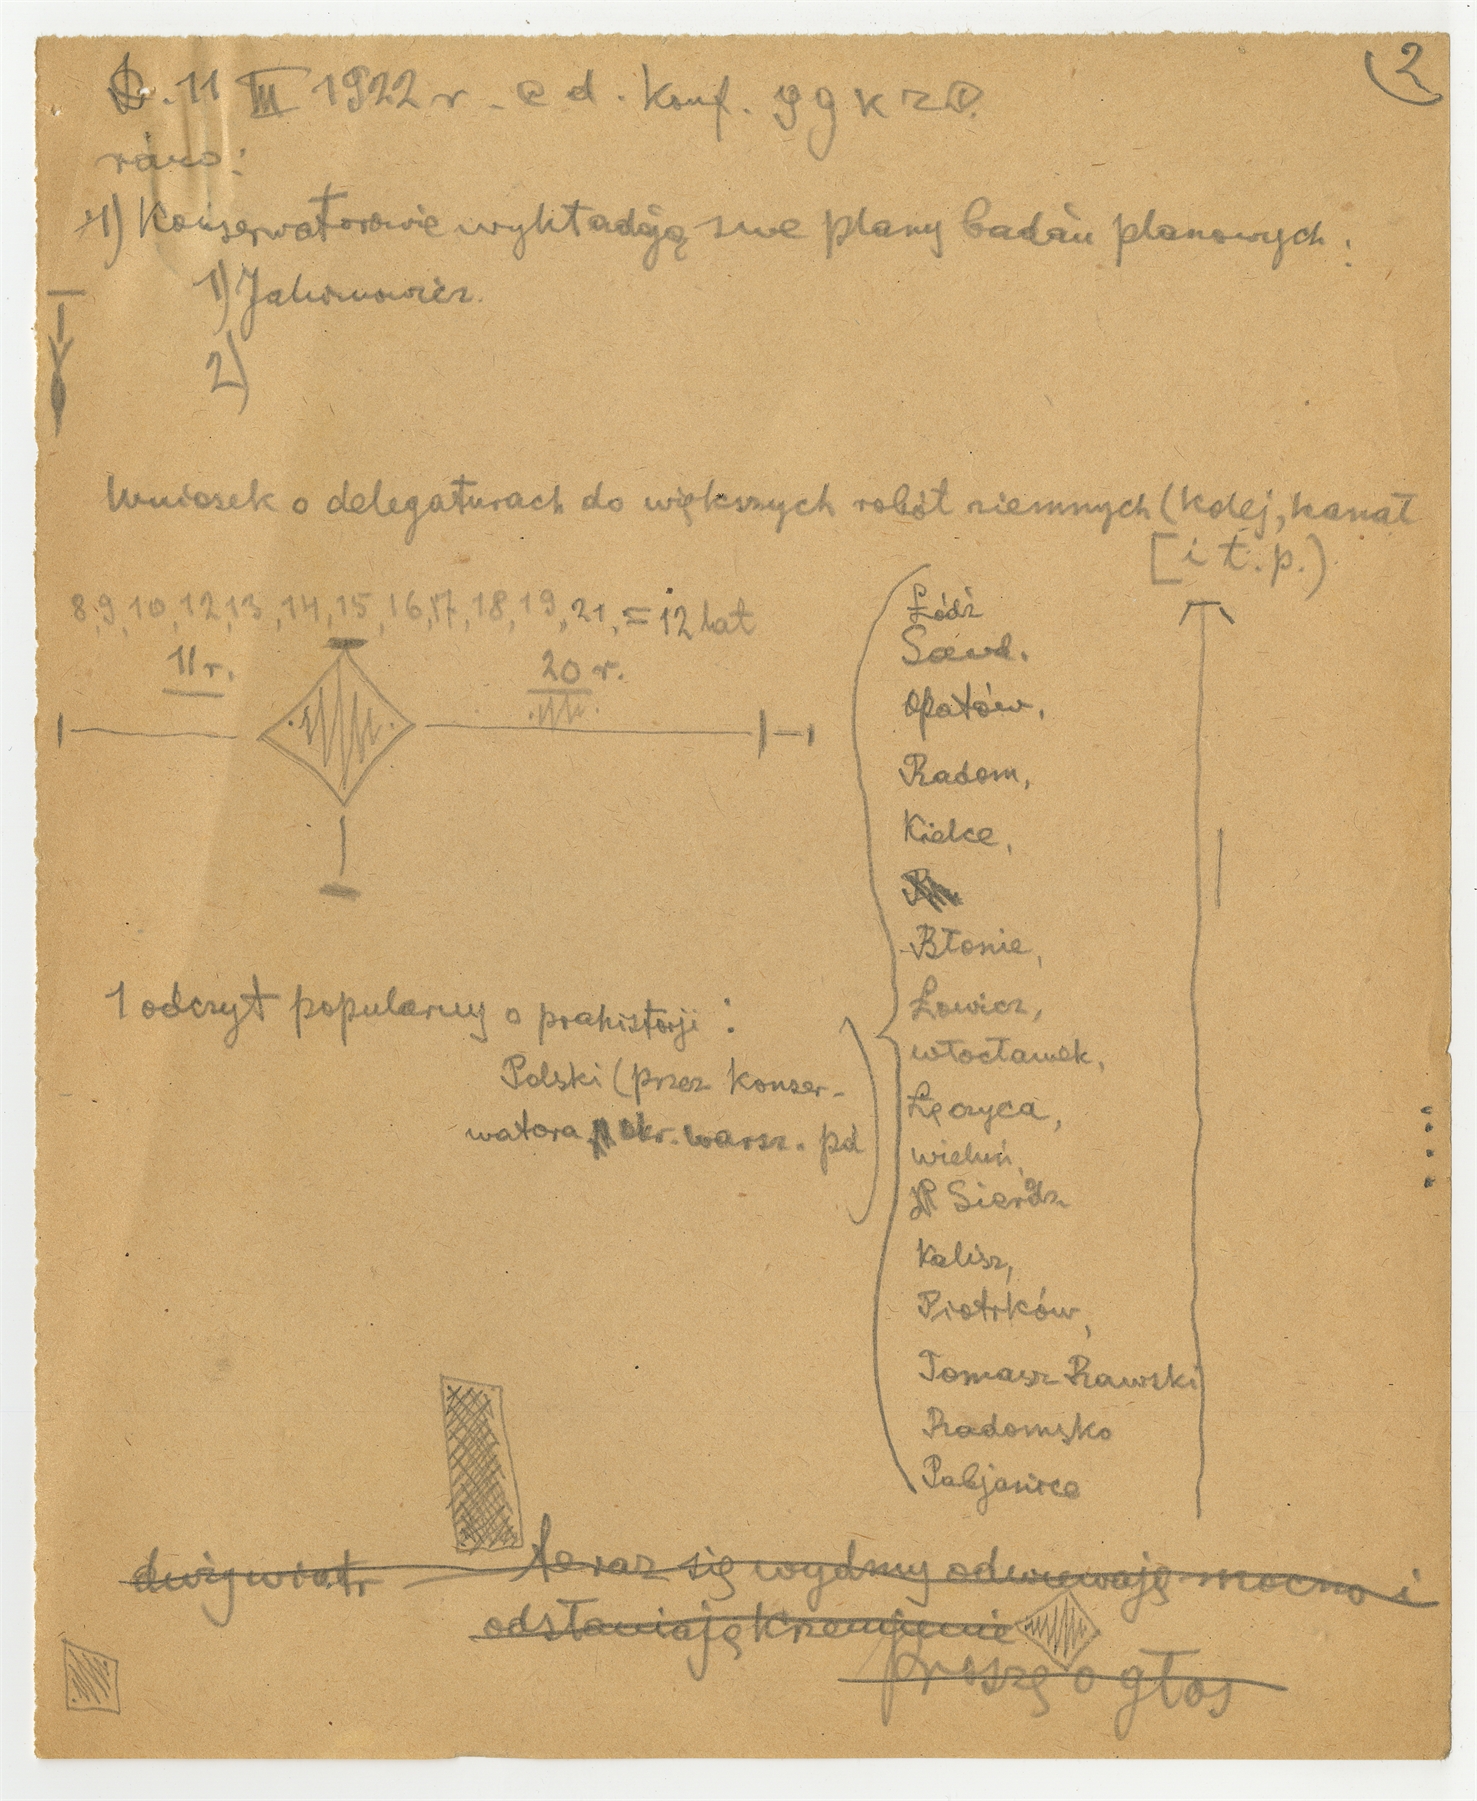 2
D. 11 III 1922 r. c d. Konf. P G K Z P.
rano:
1) Konserwatorowie wykładają swe plany badań planowych:
1) Jakimowicz.
2)
Wniosek o delegaturach do większych robót ziemnych (kolej, kanał
[i t. p.)
8, 9, 10, 12, 13, 14, 15, 16, 17, 18, 19, 21, = 12 lat
11 r.
20 r.
Łódź
Sand.
Opatów,
Radom,
Kielce,
Błonie,
Łowicz,
Włocławek,
Łęczyca,
Wieluń,
Sieradz
Kalisz,
Piotrków,
Tomasz Rawski
Radomsko
Pabjanice
1 odczyt popularny o prahistorji :
Polski (przez konser-
watora okr. warsz. pd
duży wiatr — teraz się wydmy odwiewają mocno i
odsłaniają krzemienie
proszę o głos